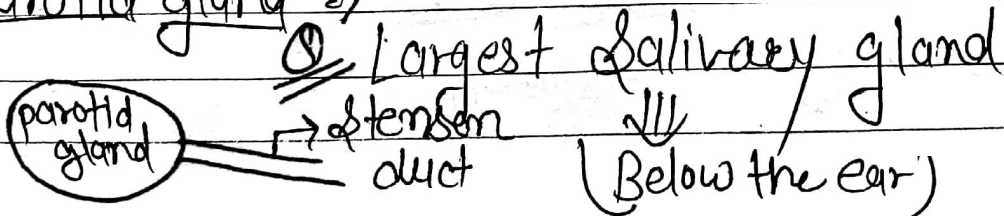 gland
① Largest Salivary gland
parotid gland → Stenson duct (Below the ear)